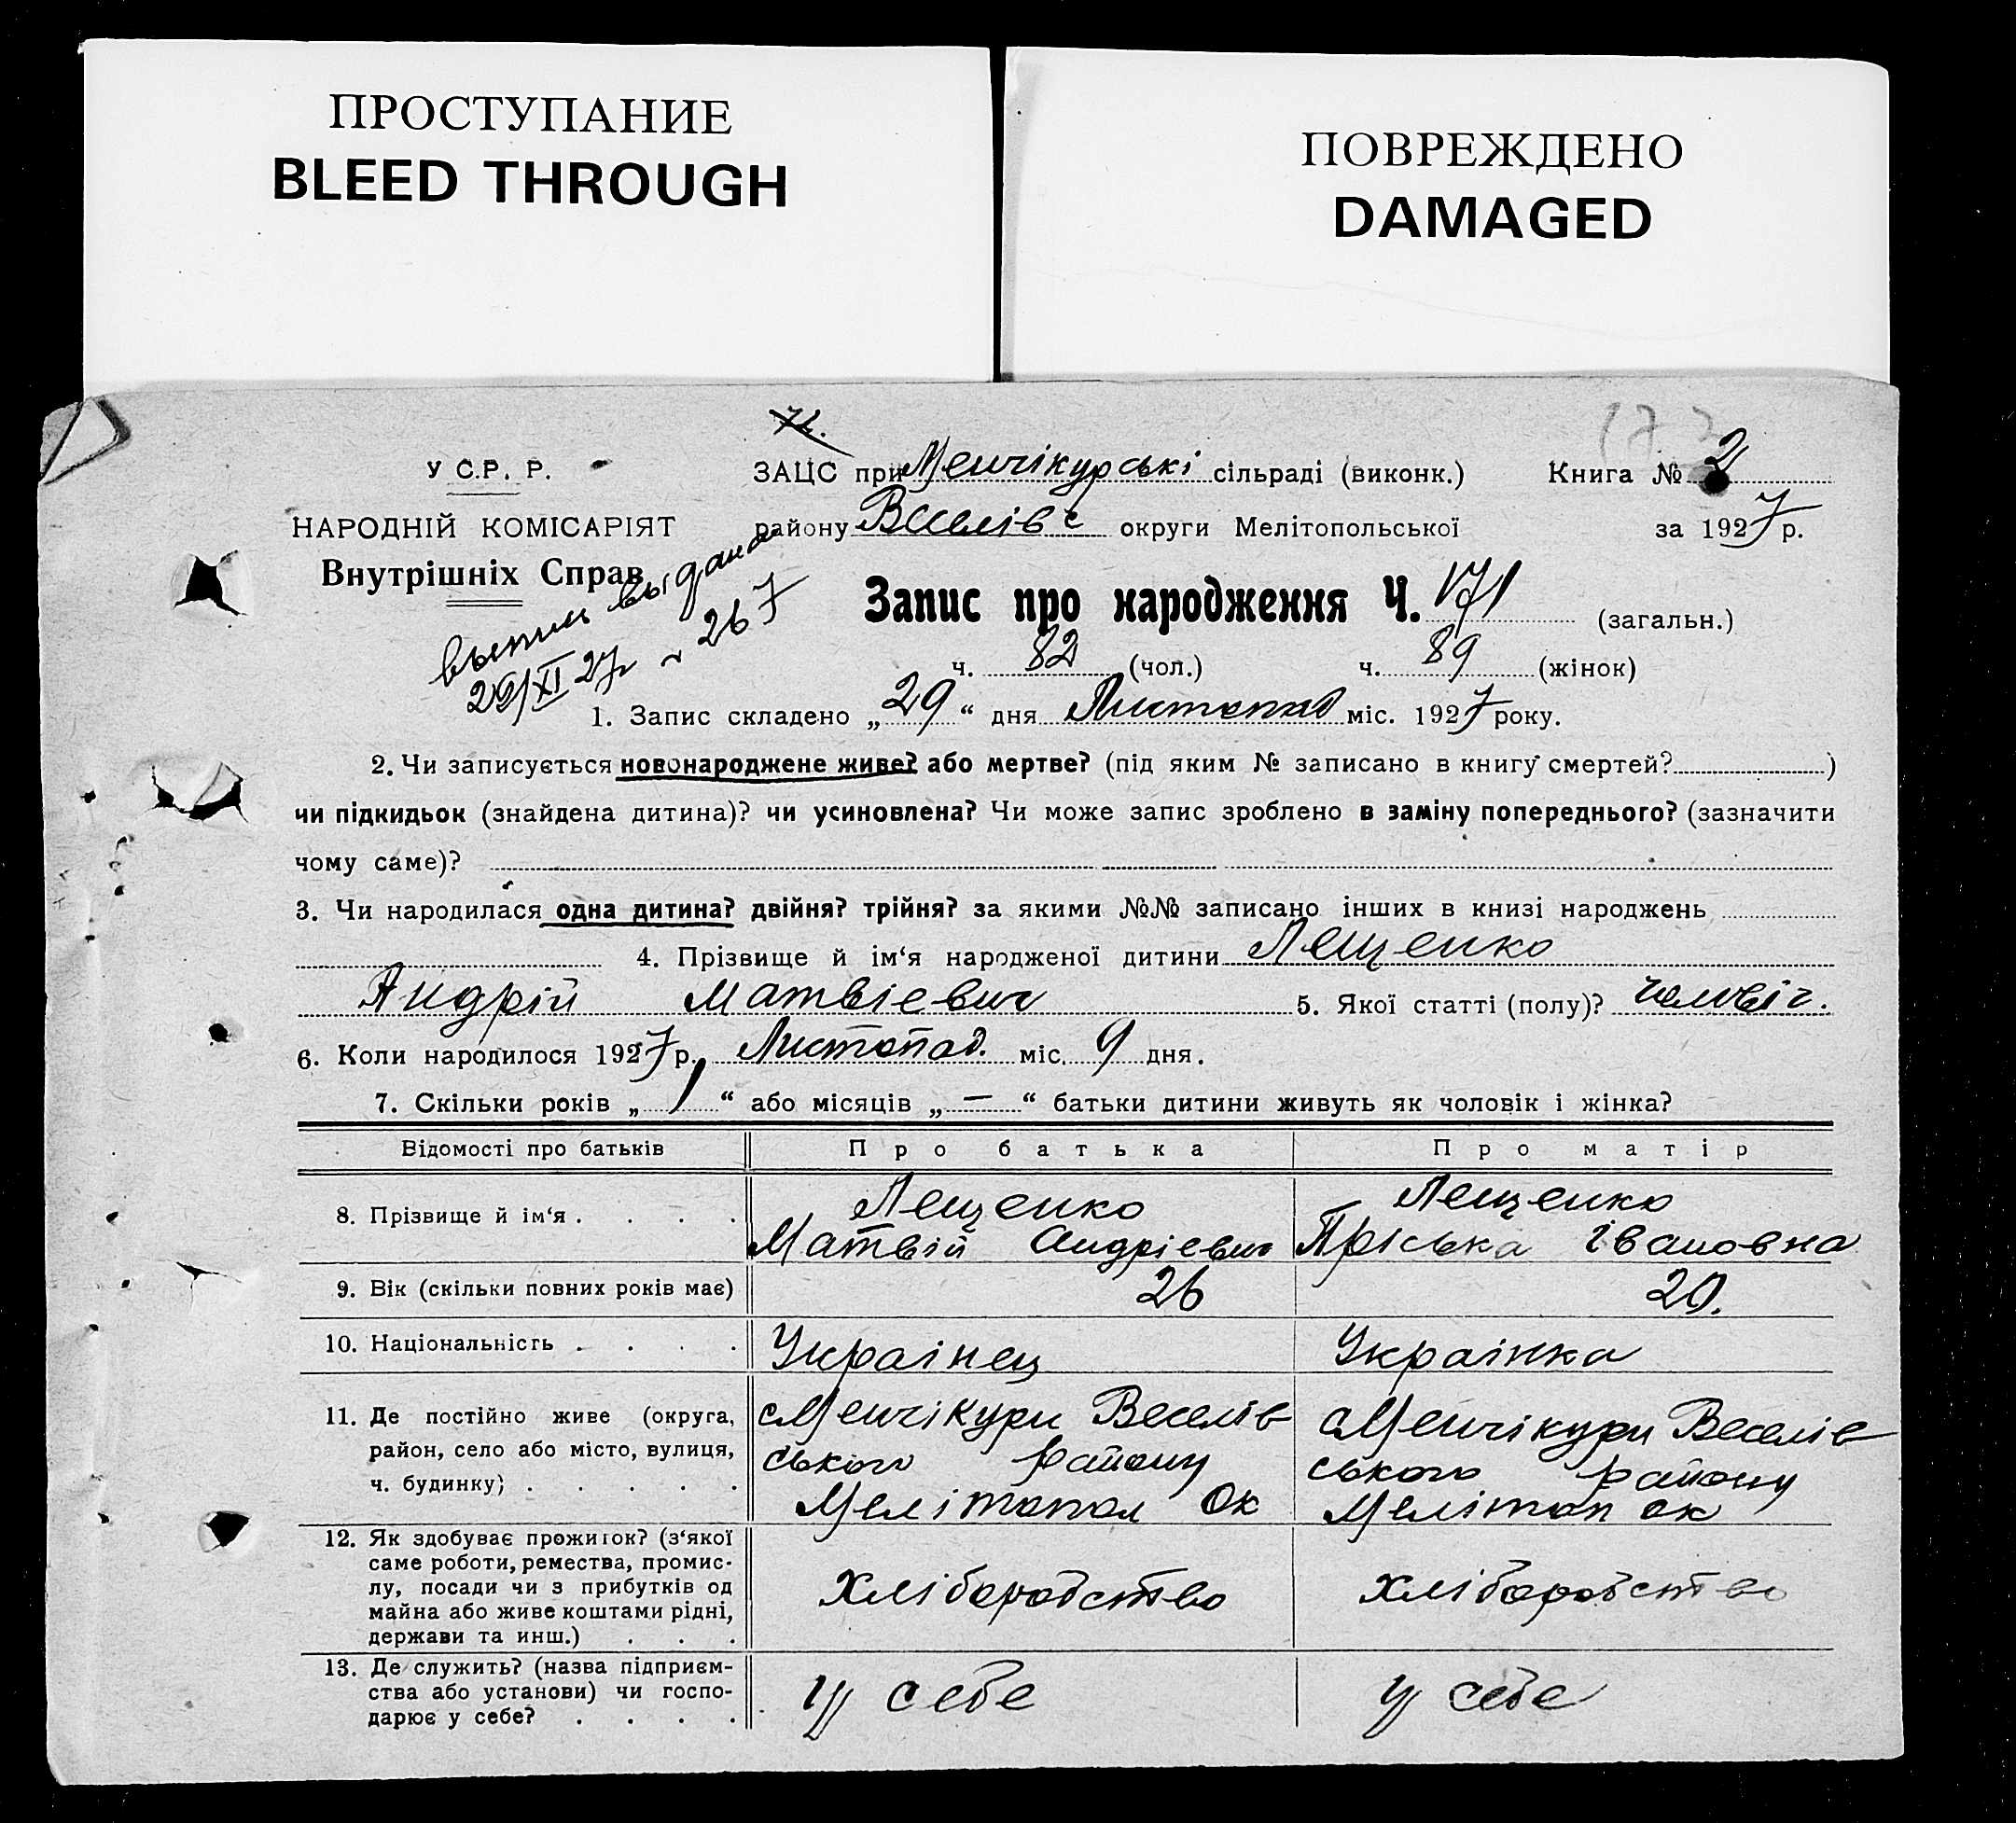 ПРОСТУПАНИЕ
BLEED THROUGH
ПОВРЕЖДЕНО
DAMAGED
У С.Р. Р.
НАРОДНІЙ КОМІСАРІЯТ
Внутрішніх Справ
выпись выдана
29/XI 27р № 267
ЗАЦС при Менчікурські сільраді (виконк.)
Книга № 2
району Веселівс округи Мелітопольської
за 1927 р.
Запис про народження Ч. 171 (загальн.)
ч. 82 (чол.) ч. 89 (жінок)
1. Запис складено „ 29 “ дня Листопад міс. 1927 року.
2. Чи записується новонароджене живе? або мертве? (під яким № записано в книгу смертей? )
чи підкидьок (знайдена дитина)? чи усиновлена? Чи може запис зроблено в заміну попереднього? (зазначити
чому саме)?
3. Чи народилася одна дитина? двійня? трійня? за якими №№ записано інших в книзі народжень
4. Прізвище й ім‘я народженої дитини Лещенко
Андрій Матвієвич 5. Якої статті (полу)? чоловіч.
6. Коли народилося 1927 р. Листопад. міс. 9 дня.
7. Скільки років „ 1 “ або місяців „ — “ батьки дитини живуть як чоловік і жінка?
Відомості про батьків Про батька Про матір
8. Прізвище й ім‘я . . . . Лещенко Лещенко
Матвій Андрієвич Пріська Івановна
9. Вік (скільки повних років має) 26 20.
10. Національність . . . . Украінец Украінка
11. Де постійно живе (округа, с Менчікури Веселів с Менчікури Веселів
район, село або місто, вулиця, ського району ського району
ч. будинку) . . . . . Мелітопол Ок Мелітоп ок
12. Як здобуває прожиток? (з‘якої
саме роботи, ремества, промис-
лу, посади чи з прибутків од Хліборобство Хліборобство
майна або живе коштами рідні,
держави та инш.) . . .
13. Де служить? (назва підприєм-
ства або установи) чи госпо- у себе у себе
дарює у себе? . . . .